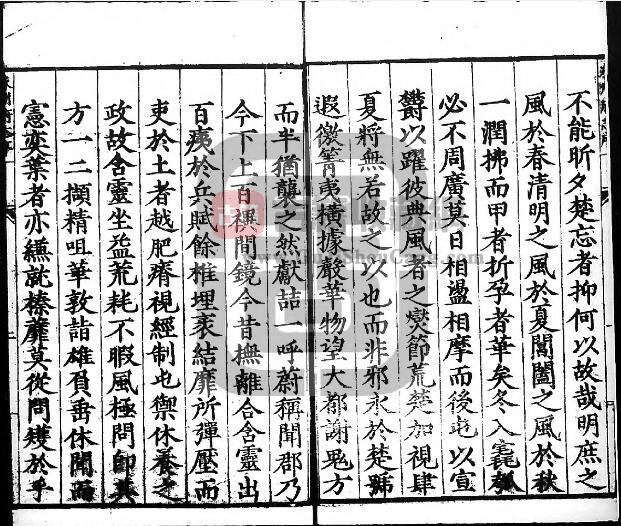 不能昕夕楚忘者抑何以故哉明庶之
風於春清明之風於夏閶闔之風於秋
一潤拂而甲者折孕者華矣冬入
必不周廣莫日相盪相摩而後屯以宣
欝以躍彼典風者之爕節荒楚加視肆
夏將無若故之以也而非邪永於楚號
遐徼箐夷橫據聲華物望大都謝鬼方
而半猶襲之然獻喆一呼蔚稱聞郡乃
今下上百禩間鏡今昔撫離合含靈出
百痍於兵賦餘椎埋裹結靡所彈壓而
吏於土者越肥瘠視經制屯禦休養之
政故含靈坐益荒耗不暇風極問即其
方一二擷精咀華敦詣雄負番休聞而
憲奕葉者亦繇就榛靡莫從問矱於乎